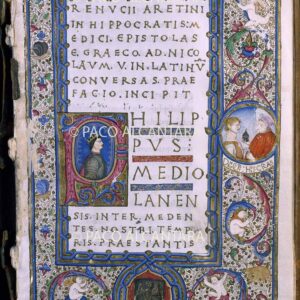 RENVCII ARETINI
IN HIPPOCRATIS: M
EDICI. EPISTOLAS
E. GRAECO. AD. NICO
LAVM. V. IN. LATINV̄
CONVERSAS. PRAE
FACIO. INCIPIT
© PACO ALCANTARA
HILIP
PVS:
MEDIO
LANEN
SIS. INTER. MEDEN
TES. NOSTRI. TEMPO
RIS. PRAESTANTIS